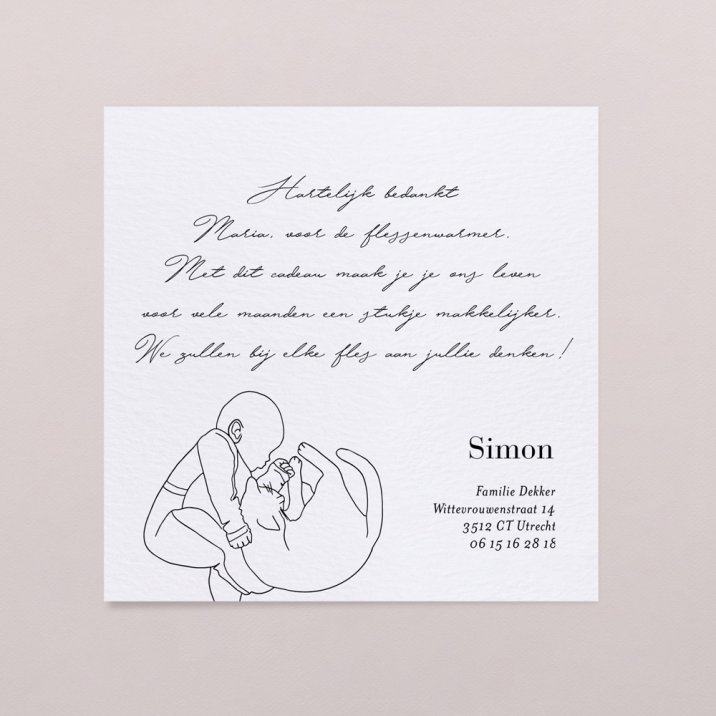 Hartelijk bedankt
Maria, voor de flessenwarmer.
Met dit cadeau maak je je ons leven
voor vele maanden een stukje makkelijker.
We zullen bij elke fles aan jullie denken!
Simon
Familie Dekker
Wittevrouwenstraat 14
3512 CT Utrecht
06 15 16 28 18